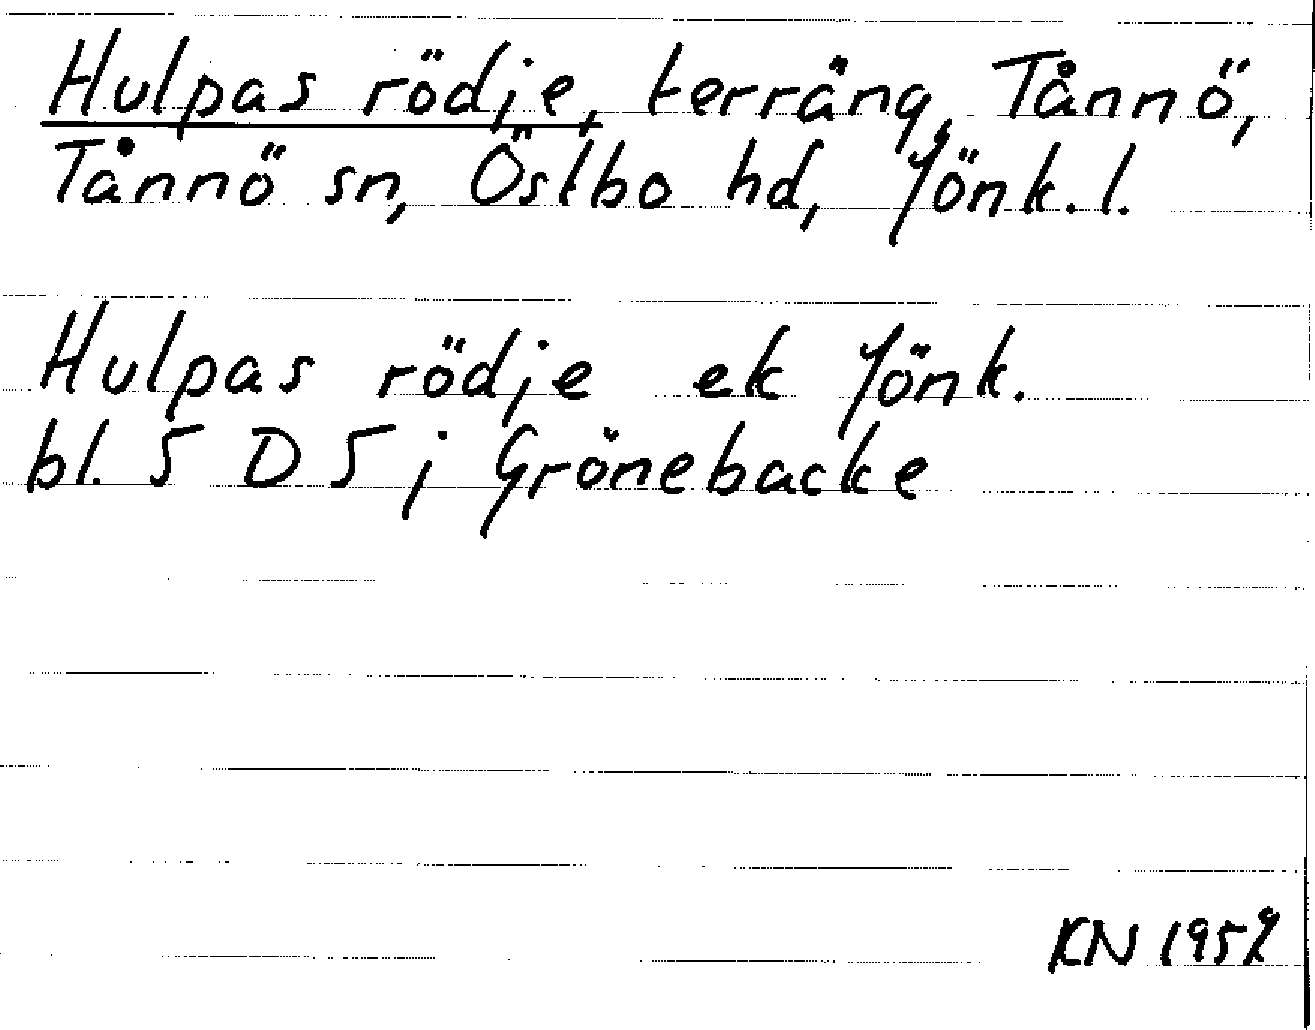 Hulpas rödje, terräng, Tånnö,
Tånnö sn, Östbo hd, Jönk. l.
Hulpas rödje ek Jönk.
bl. 5 D 5 j Grönebacke
KN